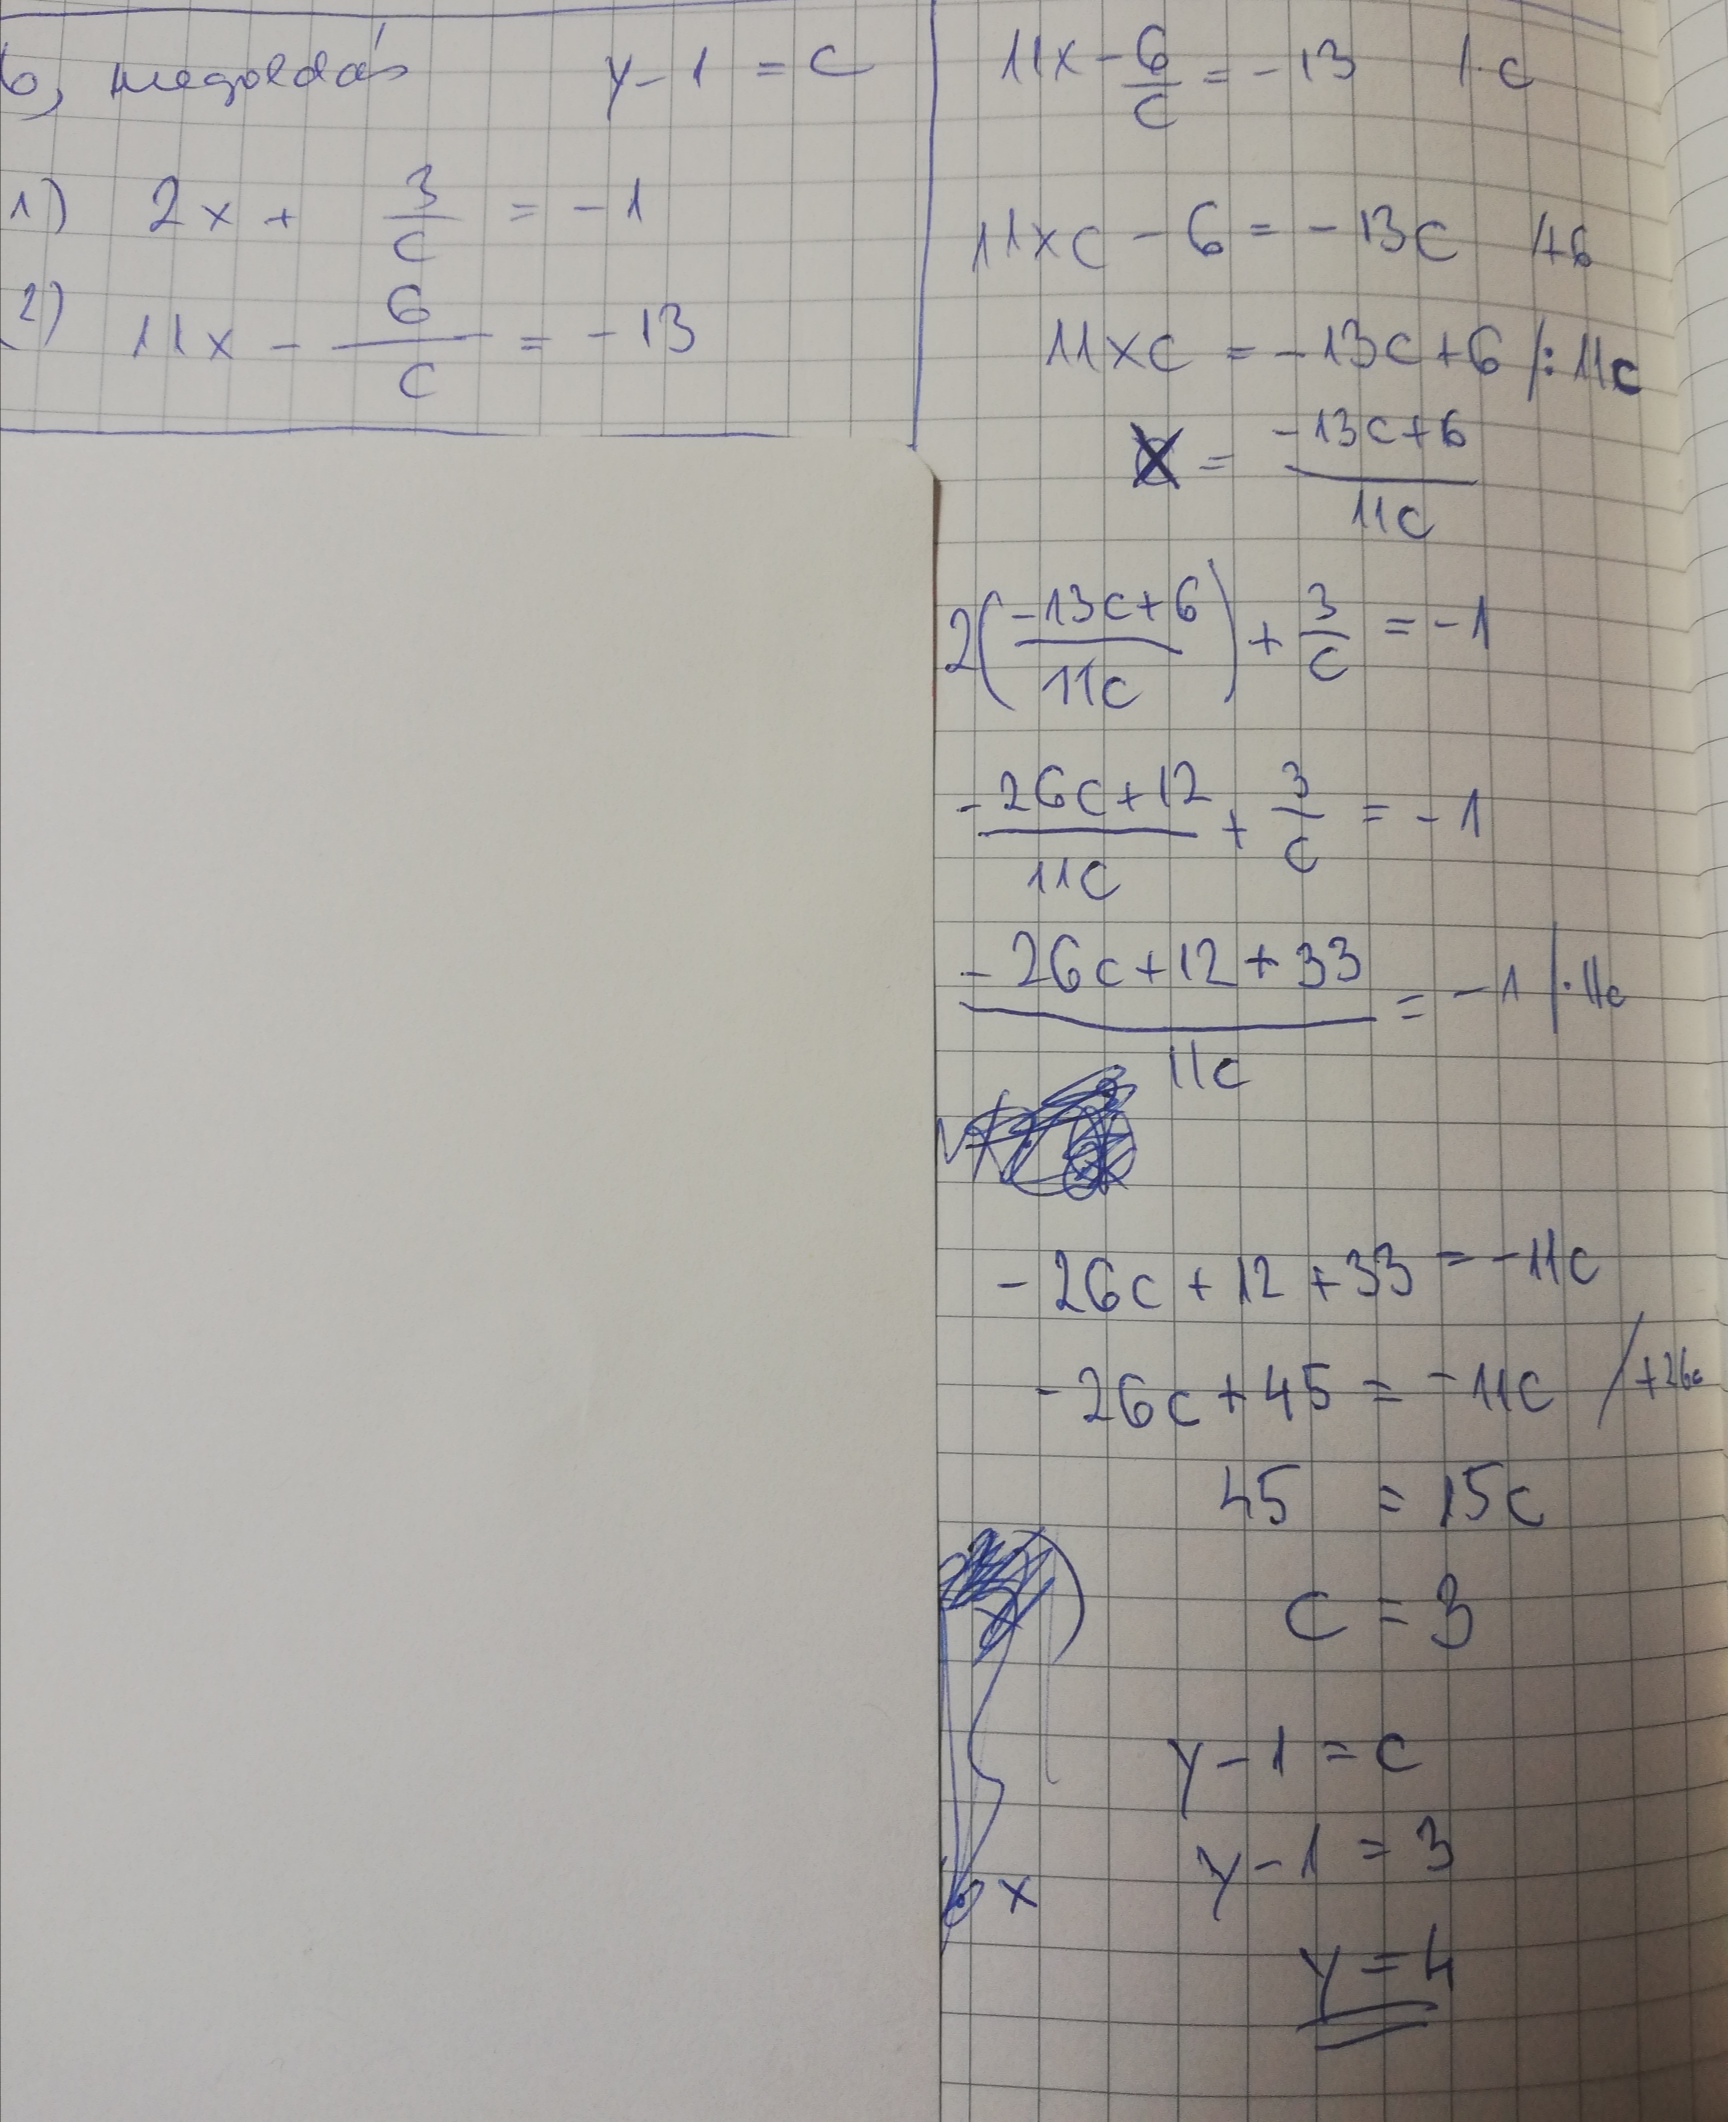 b, megoldás y - 1 = c
1) 2x + 3/c = -1
2) 11x - 6/c = -13
11x - 6/c = -13 /·c
11xc - 6 = -13c /+6
11xc = -13c+6 /: 11c
x = (-13c+6)/11c
2((-13c+6)/11c) + 3/c = -1
(-26c+12)/11c + 3/c = -1
(-26c+12+33)/11c = -1 /·11c
-26c + 12 + 33 = -11c
-26c + 45 = -11c /+26c
45 = 15c
c = 3
y - 1 = c
y - 1 = 3
x
y = 4